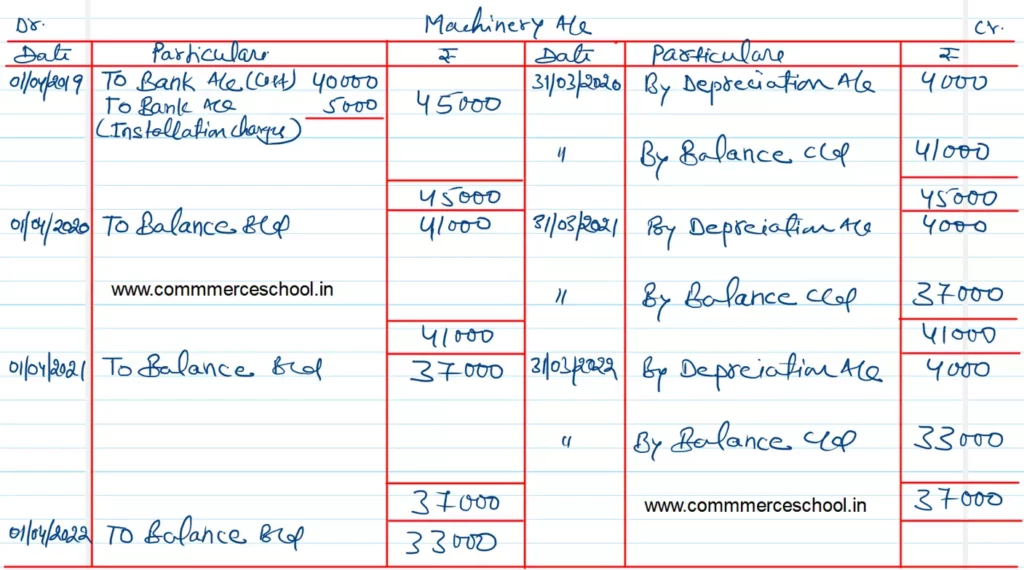 Dr. Machinery A/c Cr.
Date Particulars ₹ Date Particulars ₹
01/04/2019 To Bank A/c (Cost) 40000 31/03/2020 By Depreciation A/c 4000
To Bank A/c 5000 45000
(Installation charges)
" By Balance C/d 41000
45000 45000
01/04/2020 To Balance B/d 41000 31/03/2021 By Depreciation A/c 4000
www.commmerceschool.in " By Balance C/d 37000
41000 41000
01/04/2021 To Balance B/d 37000 31/03/2022 By Depreciation A/c 4000
" By Balance C/d 33000
37000 www.commmerceschool.in 37000
01/04/2022 To Balance B/d 33000